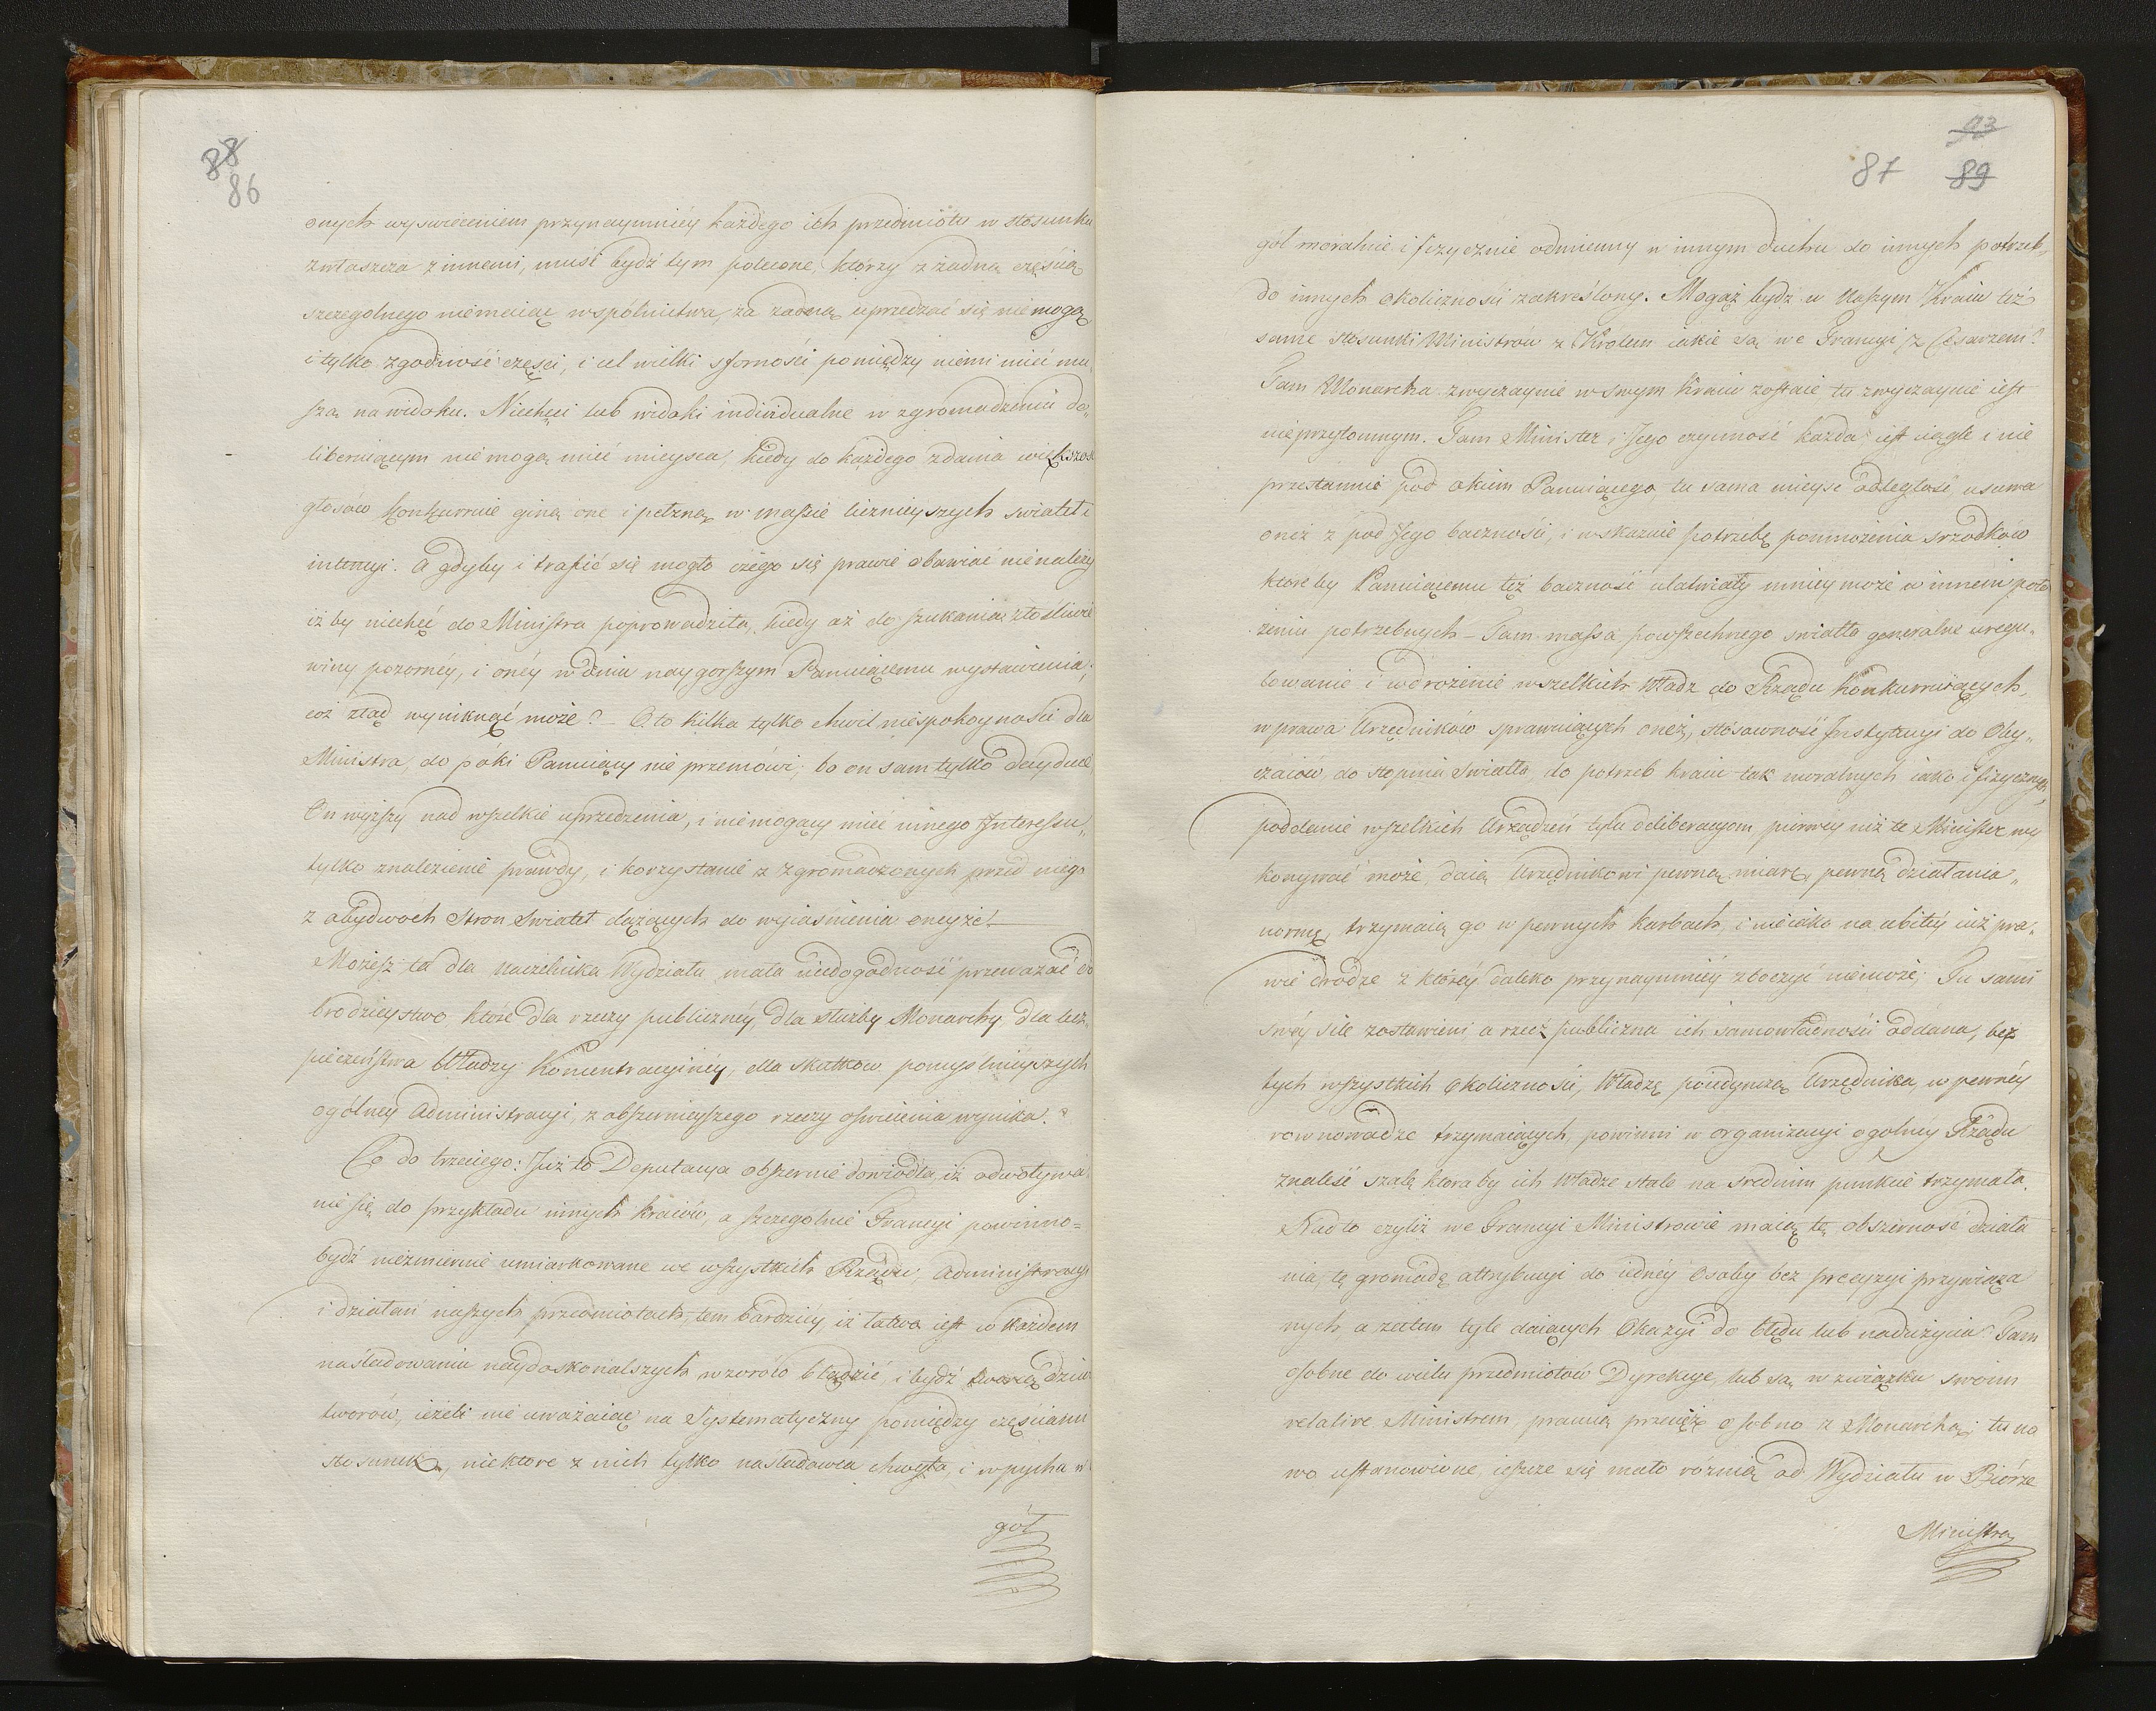 88
86
onych wyswieceniem przynaymniéy każdego ich przedmiotu w stosunku
zwłaszcza z innemi, musi bydź tym polecone, którzy z żadną częścią
szczegolnego niemaiąc wspólnictwa, za żadną uprzedzać się niemogą
i tylko zgodność części, i cel wielki sforności pomiędzy niemi mieć mu
szą na widoku. Niechęci lub widoki indiwidualne w zgromadzeniu de„
liberuiącym niemogą mieć mieysca, kiedy do każdego zdania większość
głosów konkurruie giną one i pełzną w massie licznieyszych swiateł i
intencyi. A gdyby i trafić się mogło czego się prawie obawiać nienależy
iż by niechęć do Ministra poprowadziła, kiedy aż do szukania złosliwie
winy pozornéy, i onéy w dniu naygorszym Panuiącemu wystawienia,
coż ztąd wyniknąć może? – Oto kilka tylko chwil niespokoyności dla
Ministra, do póki Panuiący nie przemówi; bo on sam tylko decyduie
On wyższy nad wszelkie uprzedzenia, i niemogący mieć innego Interessu,
tylko znalezienie prawdy, i korzystanie z zgromadzonych przed niego
z obydwoch stron swiateł dążących do wyiaśnienia oneyże!
Możesz ta dla naczelnika Wydziału mała niedogodność przeważać do
brodzieystwo, które dla rzeczy publicznéy, dla służby Monarchy, dla bez„
pieczeństwa Władzy Koncentracyinéy, dla skutkow pomyslnieyszych
ogólney Administracyi, z obszernieyszego rzeczy oświecenia wynika?
Co do trzeciego: Już to Deputacya obszernie dowiodła, iż odwoływa
nie się do przykładu innych kraiów, a szczegolnie Francyi powinno=
bydź niezmiernie umiarkowane we wszystkich Rządu, Administracyi
i działań naszych przedmiotach, tem bardziéy, iż łatwo iest w każdem
naśladowaniu naydoskonalszych wzorów błądzić, i bydź twórcą dziw
tworów, ieżeli nie uważaiąc na Systematyczny pomiędzy częściami
stosunek, niektore z nich tylko naśladowca chwyta, i wpycha w
gół
93
87 89
gół moralnie i fizycznie odmienny w innym duchu do innych potrzeb,
do innych okoliczności zakreślony. Mogąż bydź w Naszym Kraiu też
same stosunki Ministrów z Krolem iakie są we Francyi z Cesarzem?
Tam Monarcha zwyczaynie w swym Kraiu zostaie tu zwyczaynie iest
nieprzytomnym. Tam Minister i Jego czynność każda iest ciągle i nie
przestannie pod okiem Panuiącego, tu sama mieysc odległość usuwa
oneż z pod Jego baczności, i wskazuie potrzebę pomnożenia srzodkow
któreby Panuiącemu też baczność ułatwiały mniey może w innem poło
żeniu potrzebnych – Tam massa powszechnego swiatła generalne uregu„
lowanie i wdrożenie wszelkich Władz do Rządu Konkurruiących,
wprawa Urzędników sprawuiących oneż, stosowność Instytucyi do Oby„
czaiów, do stopnia Swiatła, do potrzeb kraiu tak moralnych iako i fizycznych,
poddanie wszelkich Urządzeń tylu deliberacyom, pierwey niż te Minister wy
konywać może, daią Urzędnikowi pewną miarę, pewną działania„
normę, trzymaią go w pewnych karbach, i nieiako na ubitéy iuż pra„
wie drodze z któréy daleko przynaymniéy zboczyć niemoże; Tu sami
swéy sile zostawieni a rzecz publiczna ich samowładności oddana, bez
tych wszystkich okoliczności, Władzę poiedynczą Urzędnika, w pewnéy
rownowadze trzymaiących, powinni w organizacyi ogolnéy Rządu
znaleść szalę ktoraby ich Władze stale na srednim punkcie trzymała.
Nadto czyliż we Francyi Ministrowie maią tę obszerność działa
nia, tę gromadę attrybucyi do iednéy Osoby bez precyzyi przywiąza
nych, a zatem tyle daiących Okazyi do błędu lub nadużycia? Tam
osobne do wielu przedmiotów Dyrekcye, lub są w związku swoim
relative Ministrem, pracuią przecięż osobno z Monarchą; tu no
wo ustanowione, ieszcze się mało różnią od Wydziału w Biórze
Ministra